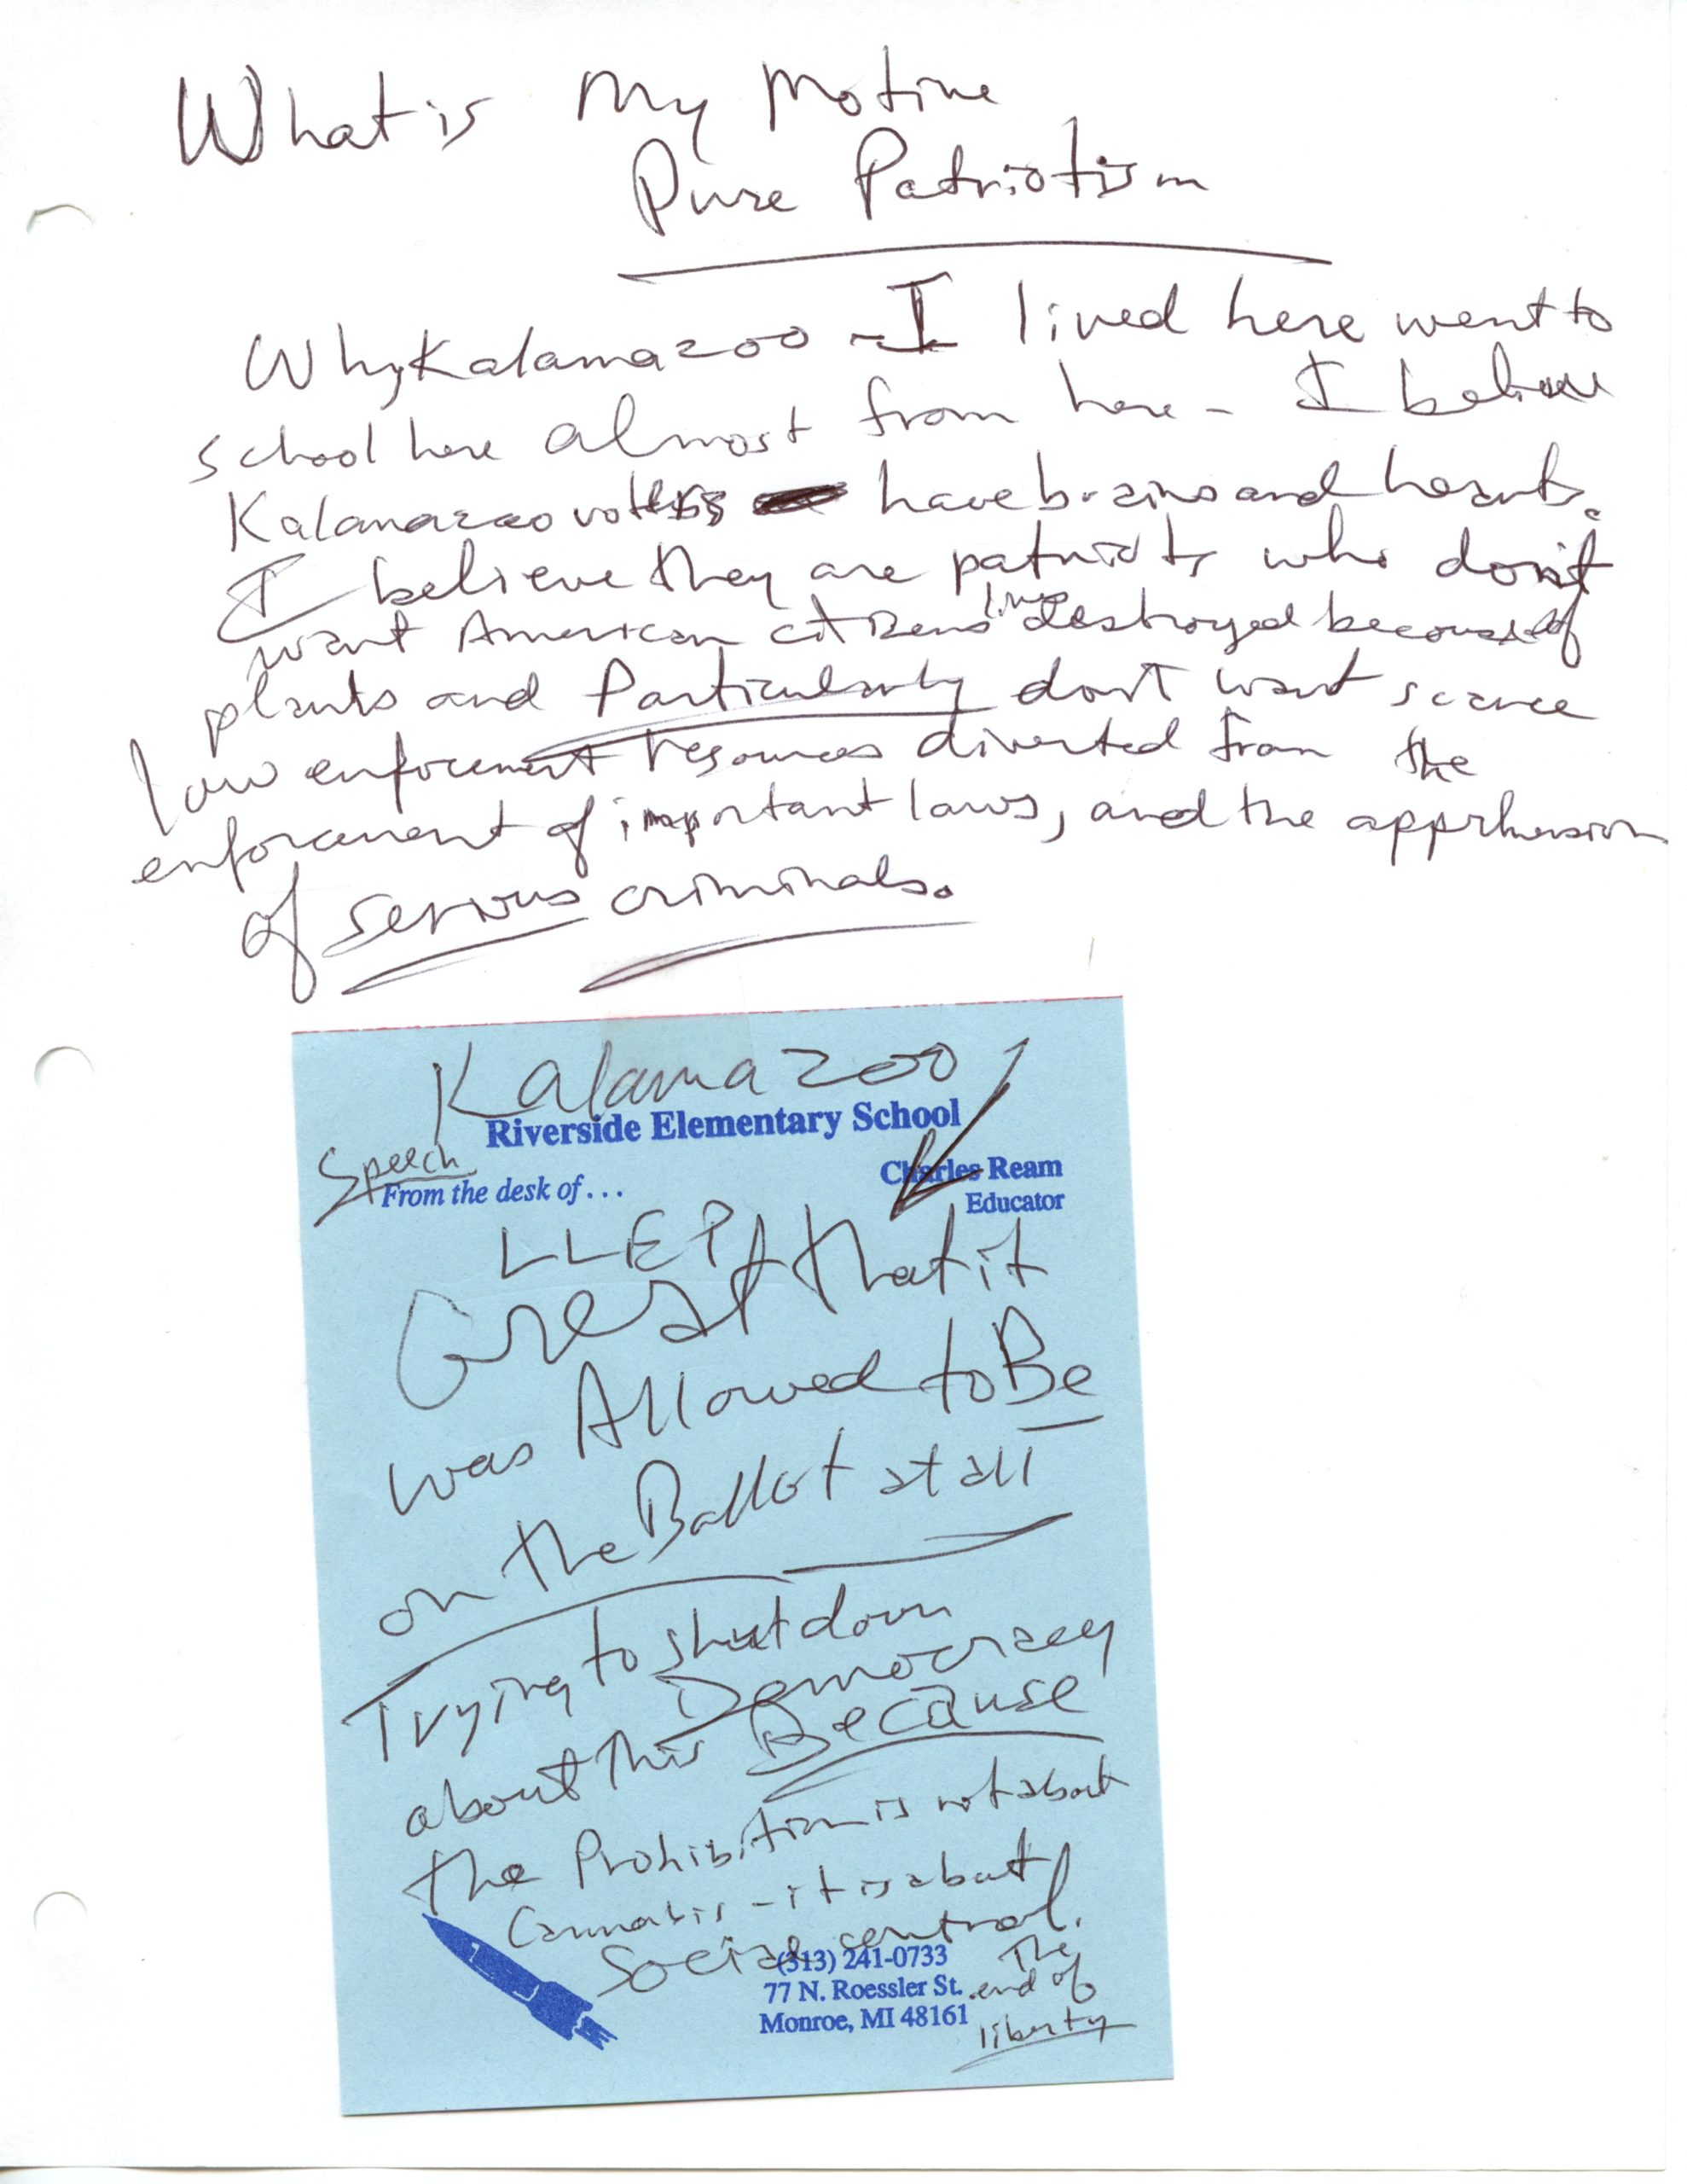 What is My Motive
Pure Patriotism
Why Kalamazoo - I lived here went to
school here almost from here - I believe
Kalamazoo voters have brains and hearts.
I believe they are patriots who don't
want American citizens lives destroyed because of
plants and Particularly don't want scarce
law enforcement resources diverted from the
enforcement of important laws, and the apprehension
of serious criminals.
Kalamazoo
Riverside Elementary School
Speech
From the desk of . . .
Charles Ream
Educator
LLEP
Great that it
was Allowed to Be
on the Ballot at all
Trying to shut down
Democracy
about this Because
the Prohibition is not about
Cannabis - it is about
Social control.
The
end of
liberty
(313) 241-0733
77 N. Roessler St.
Monroe, MI 48161